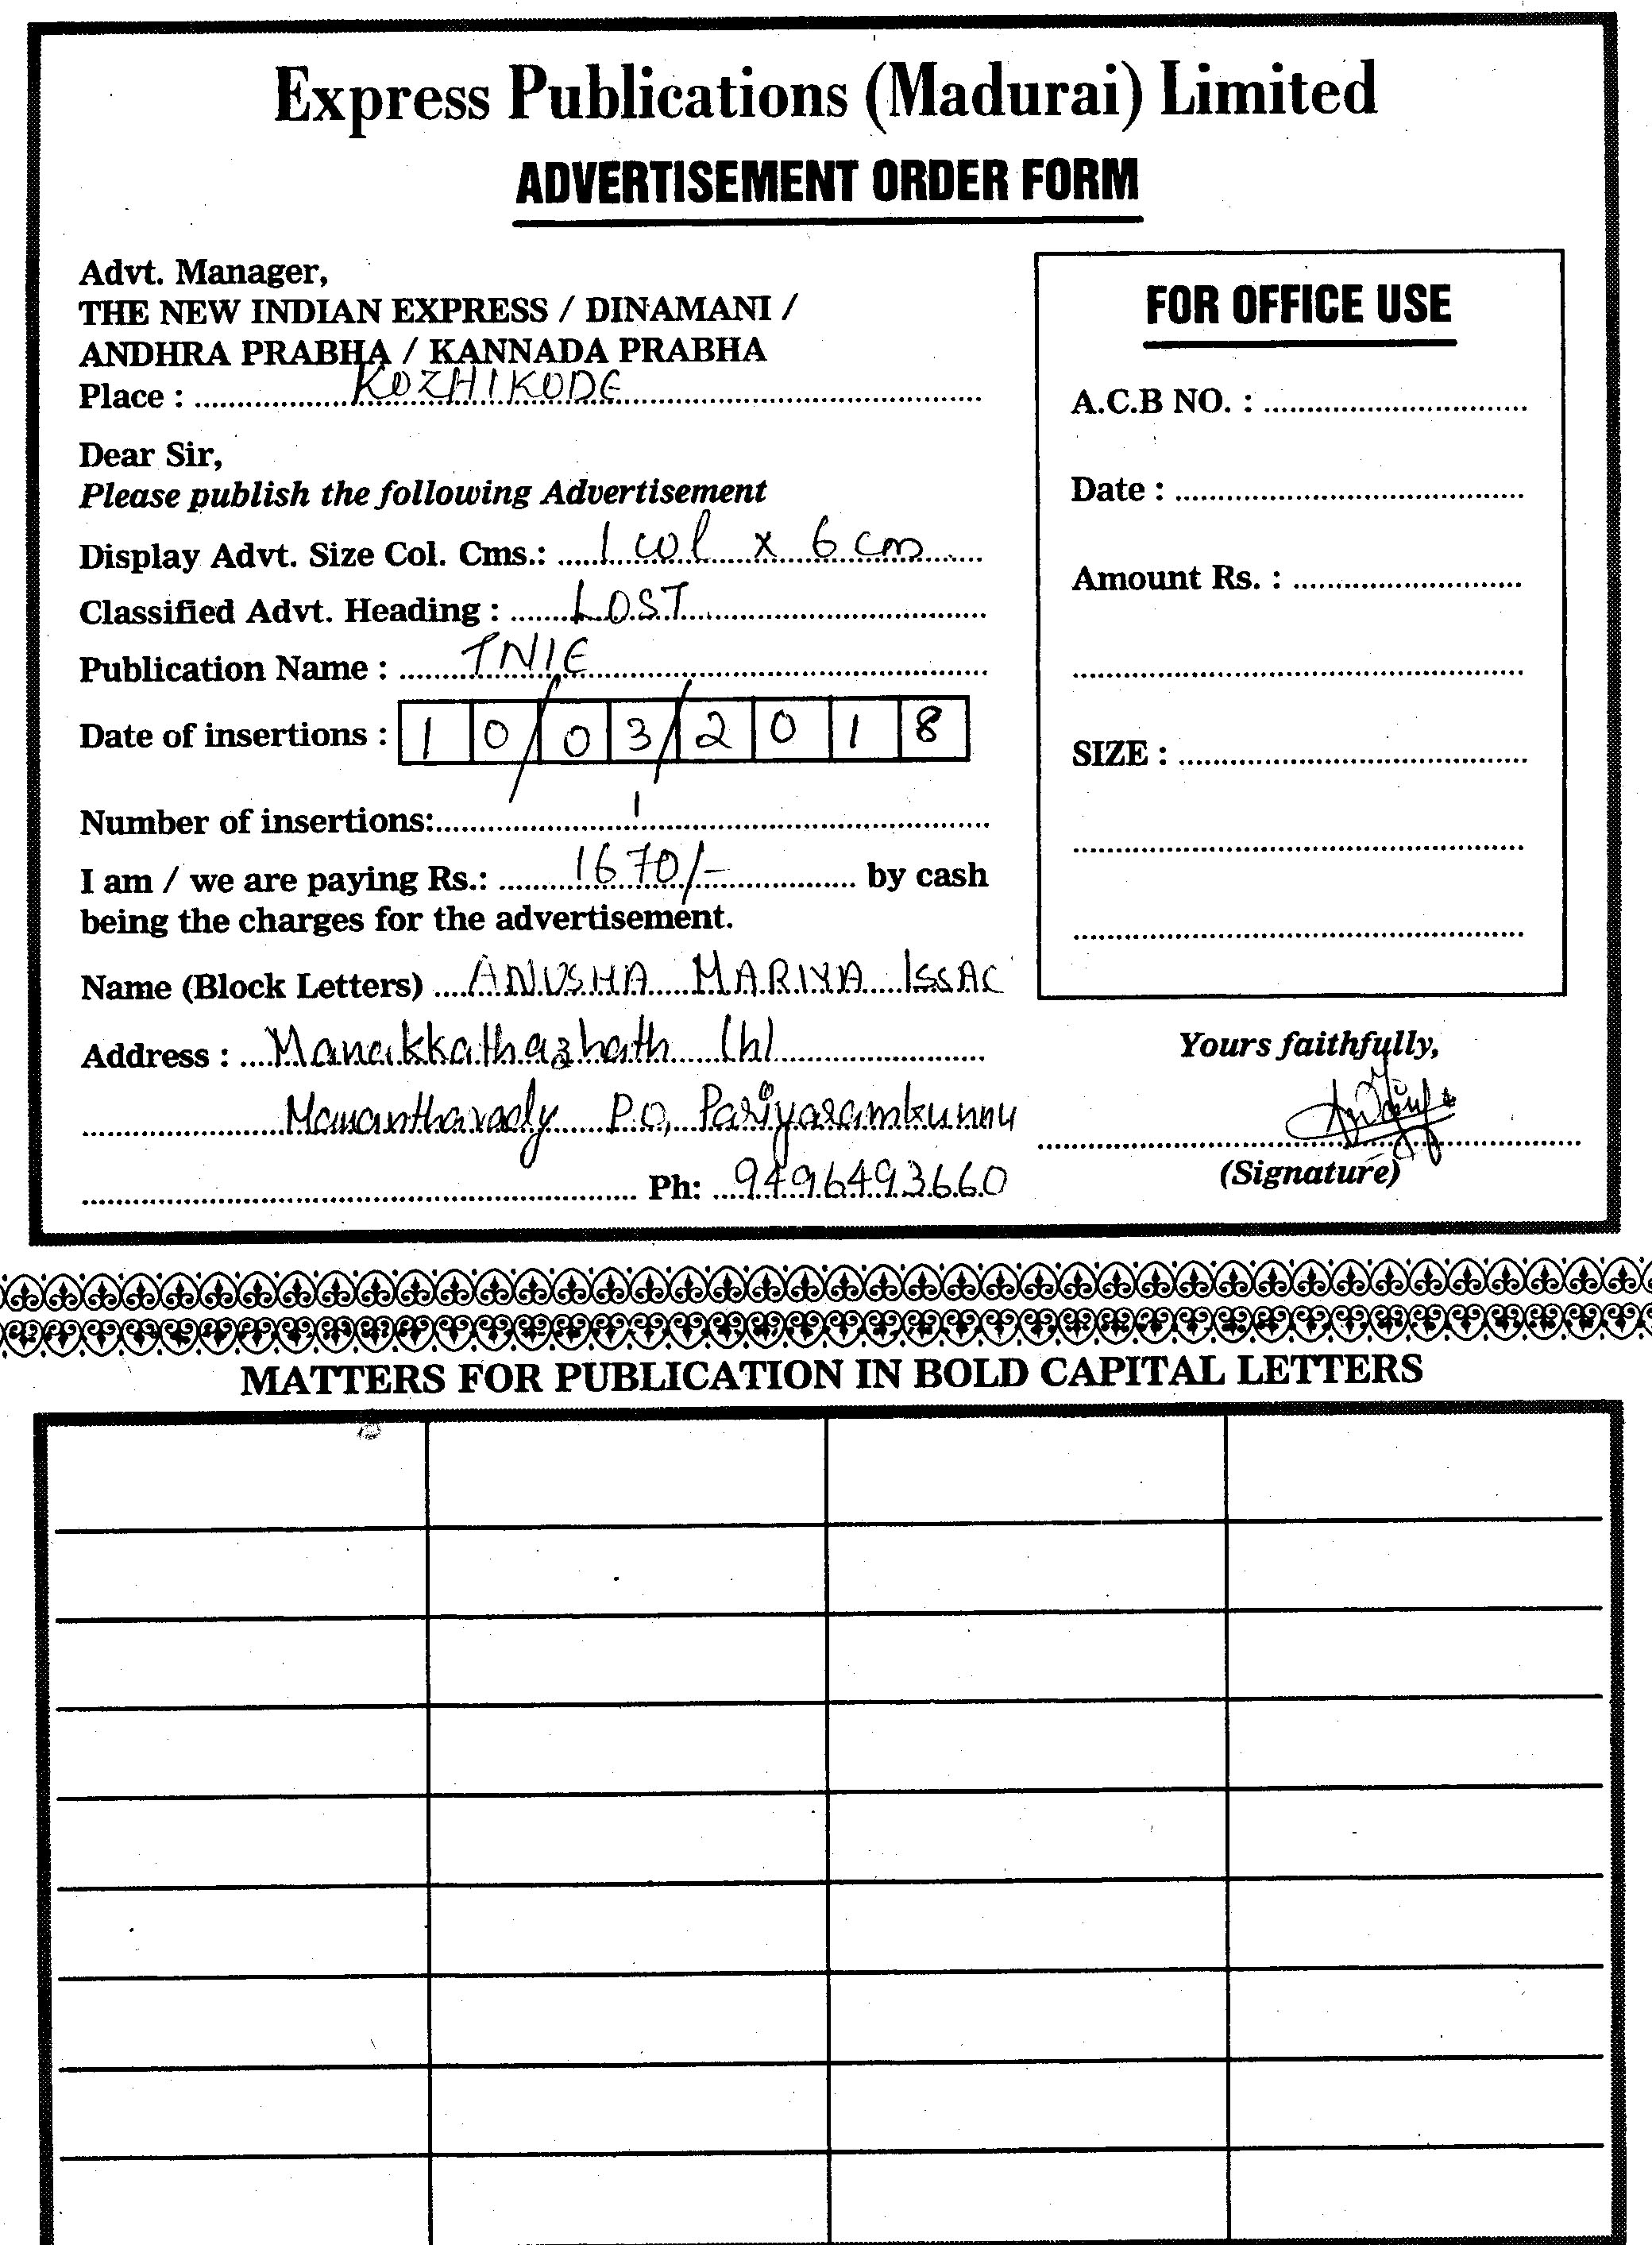 Express Publications (Madurai) Limited
ADVERTISEMENT ORDER FORM
Advt. Manager,
THE NEW INDIAN EXPRESS / DINAMANI /
ANDHRA PRABHA / KANNADA PRABHA
Place : KOZHIKODE
Dear Sir,
Please publish the following Advertisement
Display Advt. Size Col. Cms.: 1 col x 6 cm
Classified Advt. Heading : LOST
Publication Name : TNIE
Date of insertions : 10/03/2018
Number of insertions: 1
I am / we are paying Rs.: 1670/- by cash
being the charges for the advertisement.
Name (Block Letters) ANUSHA MARIYA ISSAC
Address : Manakkathazhath (h)
Mananthavady P.O, Pariyaramkunnu
Ph: 9496493660
FOR OFFICE USE
A.C.B NO. :
Date :
Amount Rs. :
SIZE :
Yours faithfully,
(Signature)
MATTERS FOR PUBLICATION IN BOLD CAPITAL LETTERS